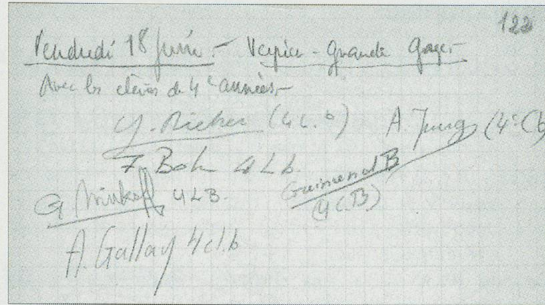 122
Vendredi 18 Juin.- Veyrier - grande gorge.-
Avec les élèves de 4e années.-
Y. Richer (4 L.b)
A. Jung (4e Cb)
F. Boh 4 Lb.
G. 4 LB.
B
(4 C.B)
A. Gallay 4 cl.b